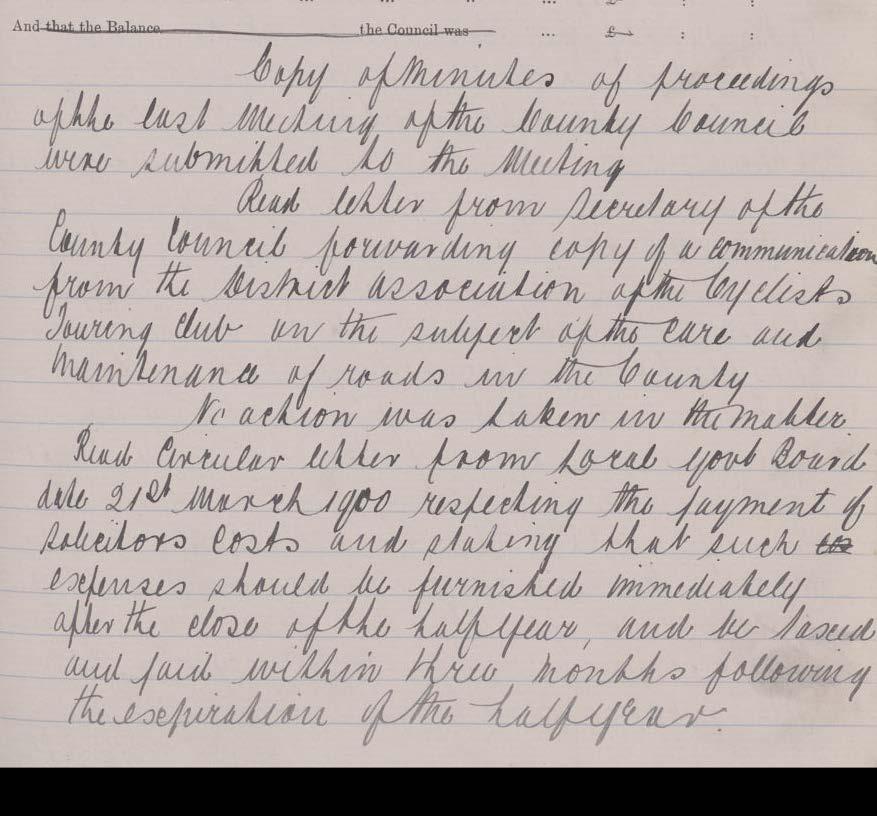 And that the Balance the Council was ... £ : :
Copy of Minutes of proceedings
of the last Meeting of the County Council
were submitted to the Meeting
Read letter from Secretary of the
County Council forwarding copy of a communication
from the District association of the Cyclists
Touring Club on the subject of the care and
Maintenance of roads in the County
No action was taken in the matter
Read Circular letter from Local Govt Board
date 21st March 1900 respecting the payment of
Solicitors Costs and stating that such
expenses should be furnished immediately
after the close of the half year, and be taxed
and paid within three months following
the expiration of the half year.